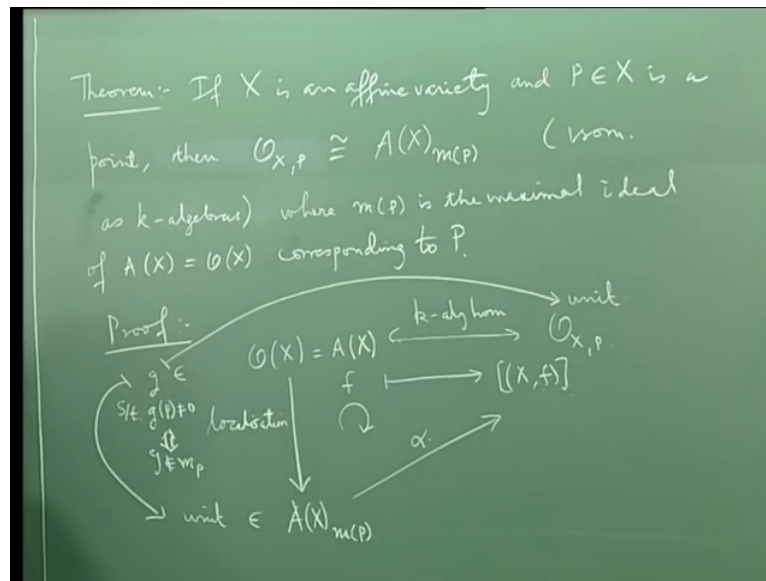 Theorem:- If X is an affine variety and P ∈ X is a
point, then 𝒪_{X,P} ≅ A(X)_{m(P)} (isom.
as k-algebras) where m(P) is the maximal ideal
of A(X) = 𝒪(X) corresponding to P.
Proof:-
unit
k-alg hom
g ∈ 𝒪(X) = A(X) ↪ 𝒪_{X,P}
s/t. g(P)≠0
f ↦ [(X,f)]
localisation
⇕
α
g ∉ m_P
unit ∈ A(X)_{m(P)}